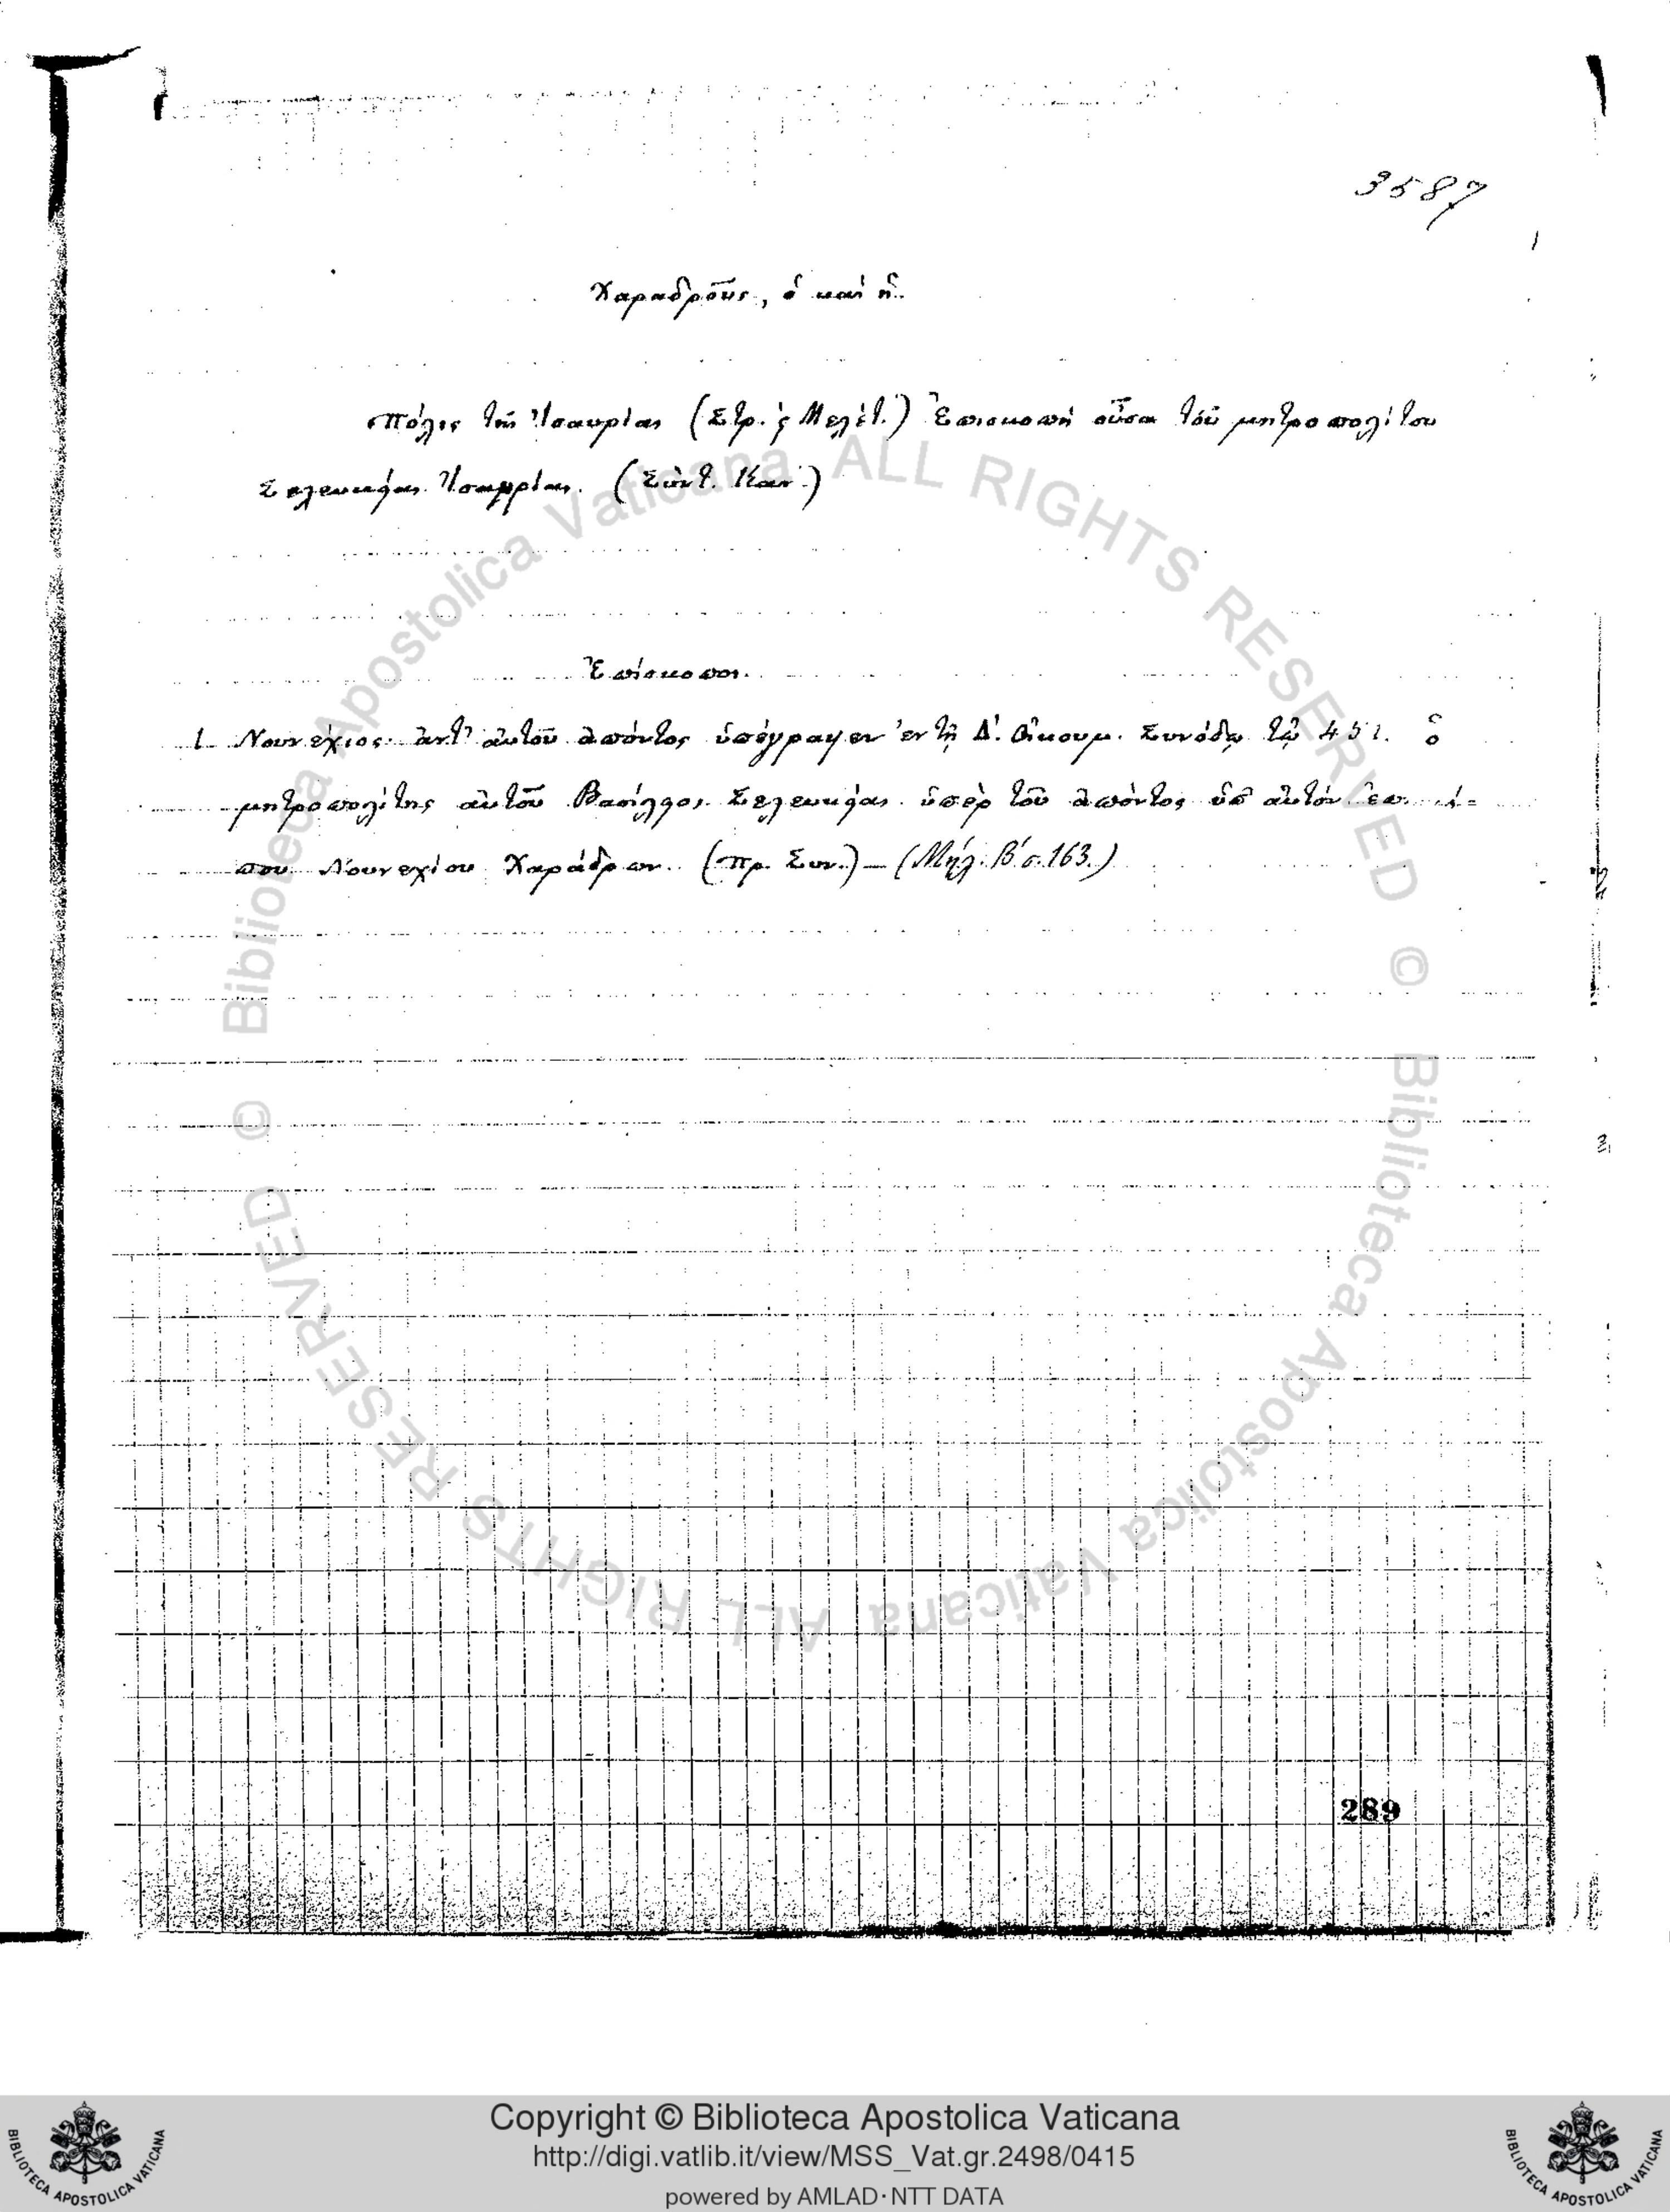 3587
Χαραδροῦς, ὁ καὶ ἡ.
Πόλις τῆς Ἰσαυρίας (Στρ. ς Μελέτ.) Ἐπισκοπὴ οὖσα τοῦ μητροπολίτου
Σελευκείας Ἰσαυρίας. (Σύντ. Καν.)
Ἐπίσκοποι.
1. Νουνέχιος ἀντ' αὐτοῦ ἀπόντος ὑπέγραψεν ἐν τῇ Δ'. Οἰκουμ. Συνόδῳ τῷ 451. ὁ
μητροπολίτης αὐτοῦ Βασίλειος Σελευκείας ὑπὲρ τοῦ ἀπόντος ὑπ' αὐτὸν
που Νουνεχίου Χαράδρων. (Πρ. Συν.) – (Μήλ. Β' σ. 163.)
289
© Biblioteca Apostolica Vaticana ALL RIGHTS RESERVED
© Biblioteca Apostolica Vaticana ALL RIGHTS RESERVED
Copyright © Biblioteca Apostolica Vaticana
http://digi.vatlib.it/view/MSS_Vat.gr.2498/0415
powered by AMLAD·NTT DATA
BIBLIOTECA APOSTOLICA VATICANA
BIBLIOTECA APOSTOLICA VATICANA